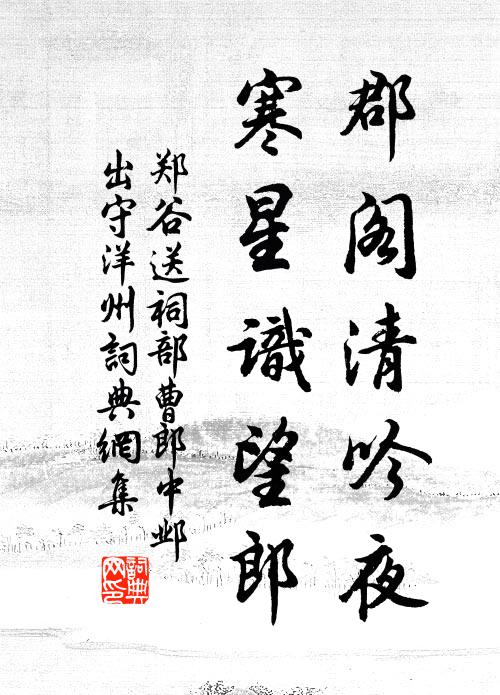 郡阁清吟夜
寒星識望郎
郑谷送祠部曹郎中邺
出守洋州詞典網集
詞典
网印